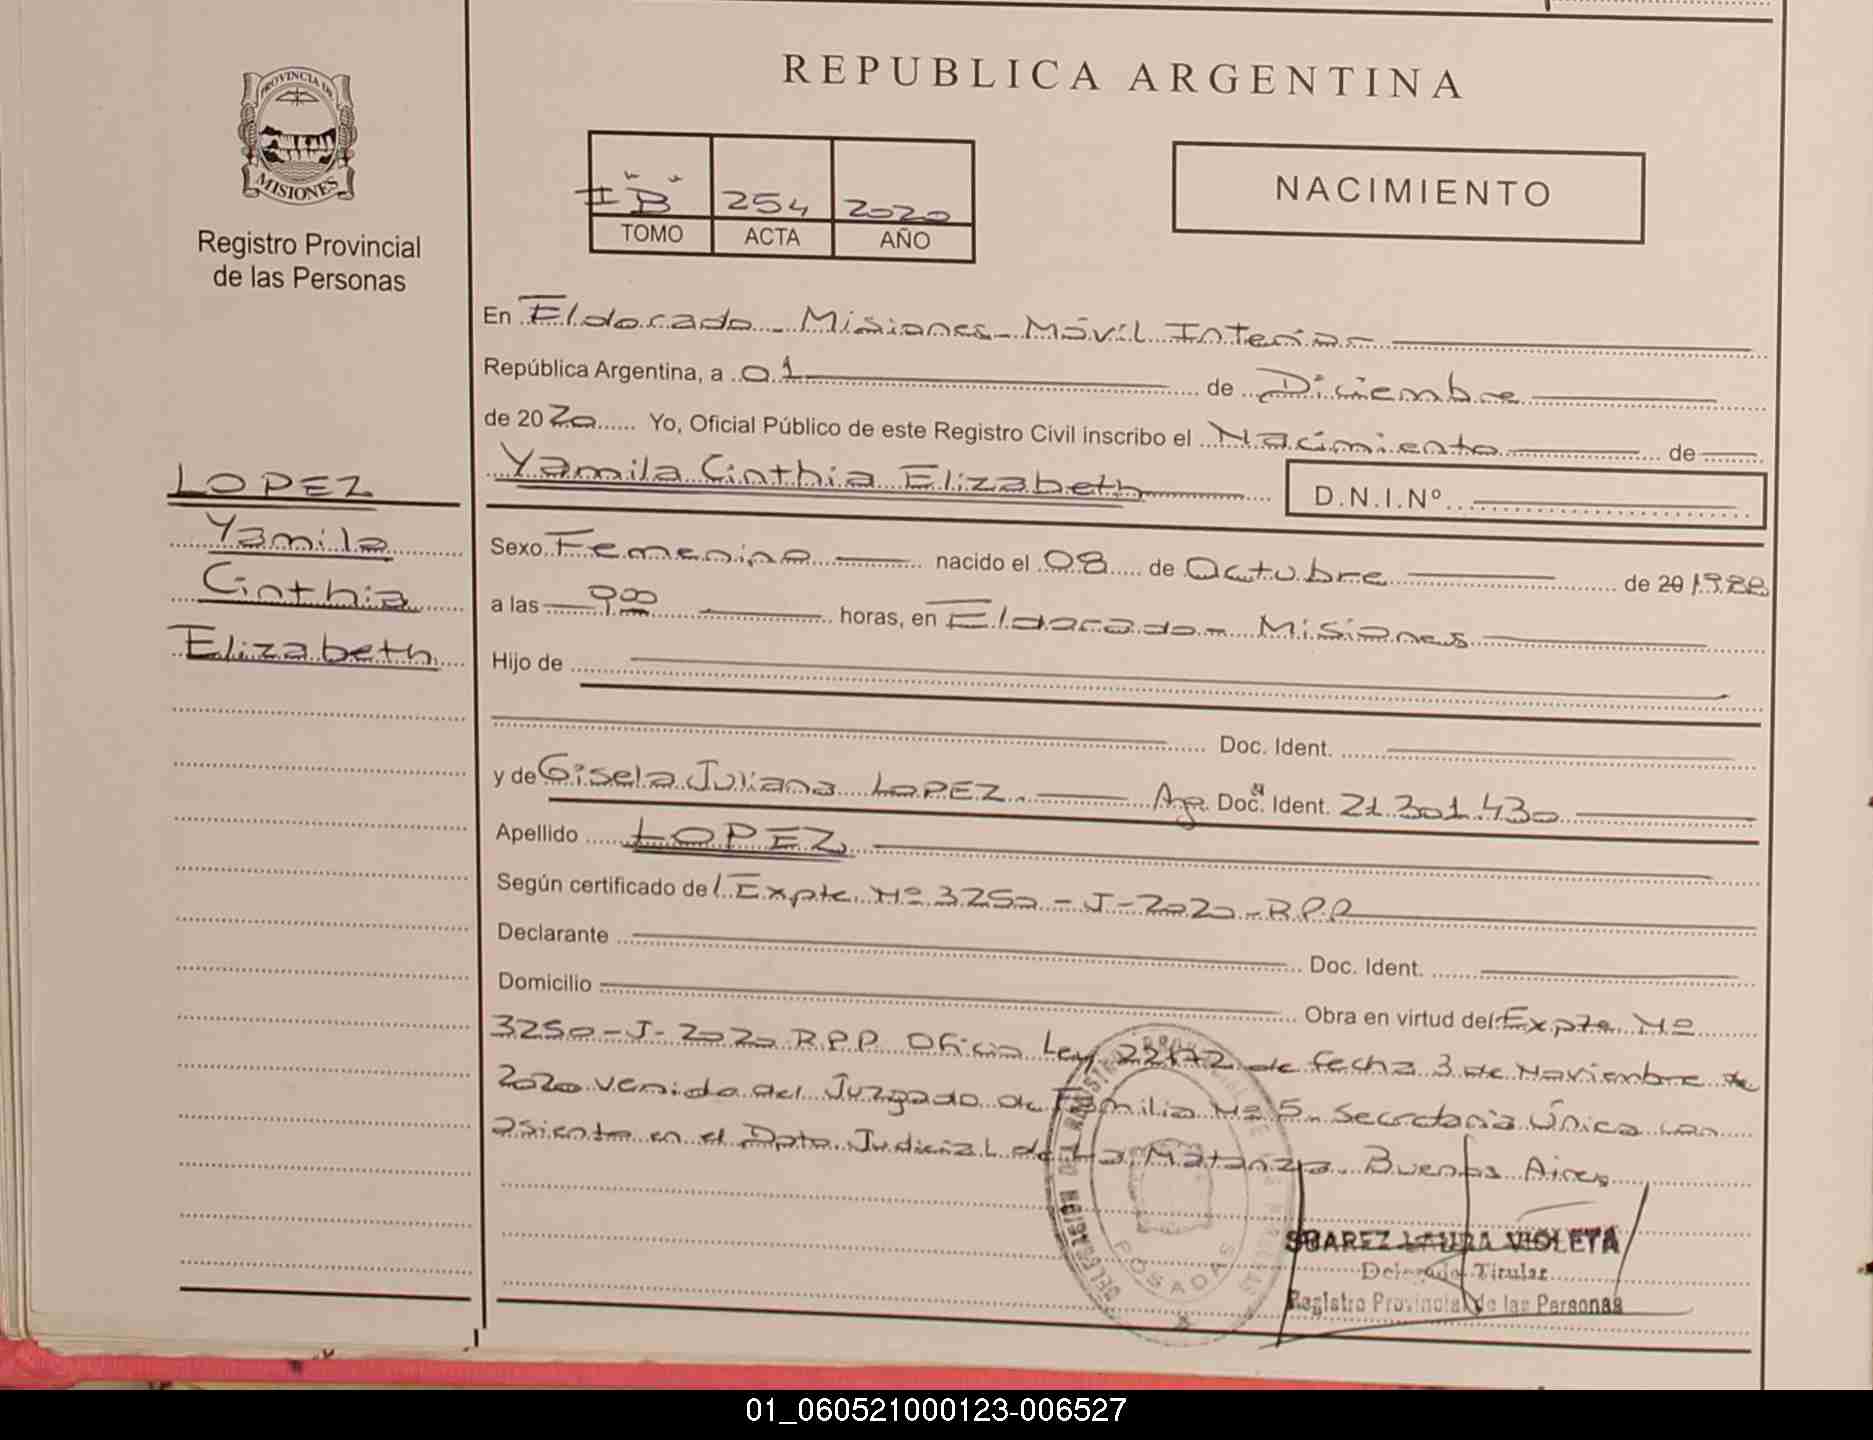 REPUBLICA ARGENTINA
PROVINCIA DE
MISIONES
Registro Provincial
de las Personas
I "B" 254 2020
TOMO ACTA AÑO
NACIMIENTO
En Eldorado - Misiones - Móvil Interior
República Argentina, a 01 de Diciembre
de 2020 Yo, Oficial Público de este Registro Civil inscribo el Nacimiento de
Yamila Cinthia Elizabeth D.N.I.Nº
LOPEZ
Yamila
Cinthia
Elizabeth
Sexo Femenino nacido el 08 de Octubre de 20 1988
a las 9:00 horas, en Eldorado - Misiones
Hijo de
Doc. Ident.
y de Gisela Juliana LOPEZ. Arg. Doc. Ident. 21.301.430
Apellido LOPEZ
Según certificado de l Expte. Nº 3250 - J - 2020 - R.P.P
Declarante Doc. Ident.
Domicilio Obra en virtud del Expte Nº
3250 - J - 2020 R.P.P Oficio Ley 22172 de fecha 3 de Noviembre de
2020 venido del Juzgado de Familia Nº 5 - Secretaría Única con
asiento en el Dpto Judicial de La Matanza. Buenos Aires
POSADAS
SUAREZ LAURA VIOLETA
Delegado Titular
Registro Provincial de las Personas
01_060521000123-006527